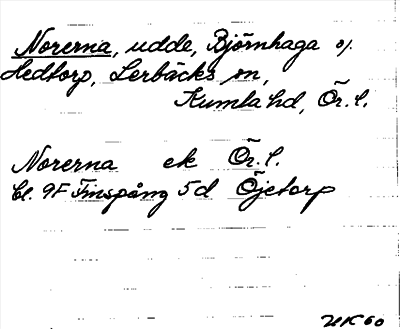 Norerna, udde, Björnhaga o/
Hedtorp, Lerbäcks sn,
Kumla hd, Ör. l.
Norerna ek Ör. l.
Bl. 9F Finspång 5d Öjetorp
HK 60